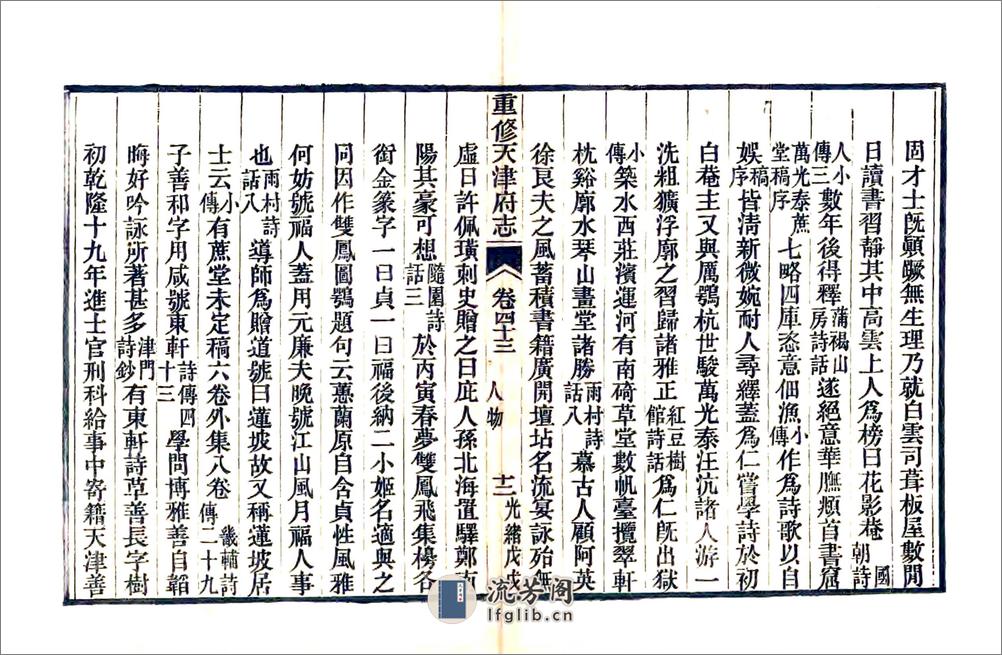 固才士旣顚蹶無生理乃就白雲司葺板屋數閒
日讀書習靜其中高雲上人爲榜曰花影菴國朝詩
人小傳三數年後得釋蒲褐山房詩話遂絕意華膴頫首書窟
萬光泰蔗堂稿序七略四庫恣意佃漁小傳作爲詩歌以自
娛稿序皆淸新微婉耐人尋繹蓋爲仁嘗學詩於初
白菴主又與厲鶚杭世駿萬光泰汪沆諸人游一
洗粗獷浮廓之習歸諸雅正紅豆樹館詩話爲仁旣出獄
小傳築水西莊濱運河有南碕草堂數帆臺攬翠軒
枕谿廓水琴山畫堂諸勝雨村詩話八慕古人顧阿英
徐良夫之風蓄積書籍廣開壇坫名流宴詠殆無
重修天津府志 卷四十三 人物 十二 光緒戊戌
虛日許佩璜刺史贈之曰庇人孫北海置驛鄭南
陽其豪可想隨園詩話三於丙寅春夢雙鳳飛集楊各
銜金篆字一曰貞一曰福後納二小姬名適與之
同因作雙鳳圖鶚題句云蕙蘭原自含貞性風雅
何妨號福人蓋用元廉夫晚號江山風月福人事
也雨村詩話八導師爲贈道號曰蓮坡故又稱蓮坡居
士云小傳有蔗堂未定稿六卷外集八卷畿輔詩傳二十九
子善和字用咸號東軒詩傳四十三學問博雅善自韜
晦好吟詠所著甚多津門詩鈔有東軒詩草善長字樹
初乾隆十九年進士官刑科給事中寄籍天津善
流芳阁
lfglib.cn